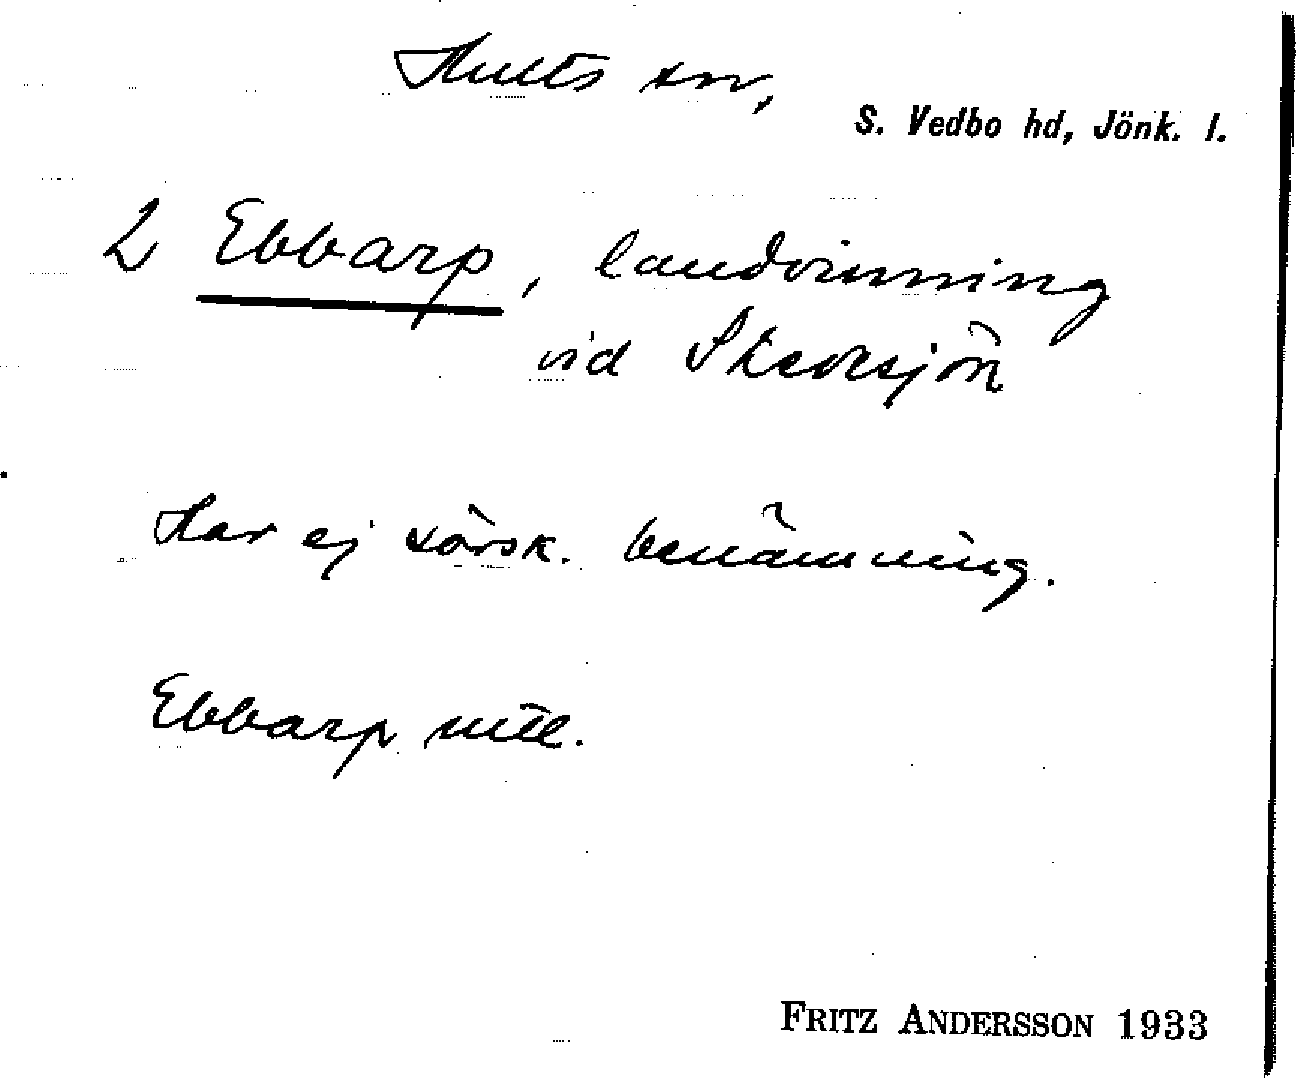 Hults sn,
S. Vedbo hd, Jönk. l.
2 Ebbarp, landvinning
vid Skedesjön
Har ej särsk. benämning.
Ebbarp nitt.
FRITZ ANDERSSON 1933